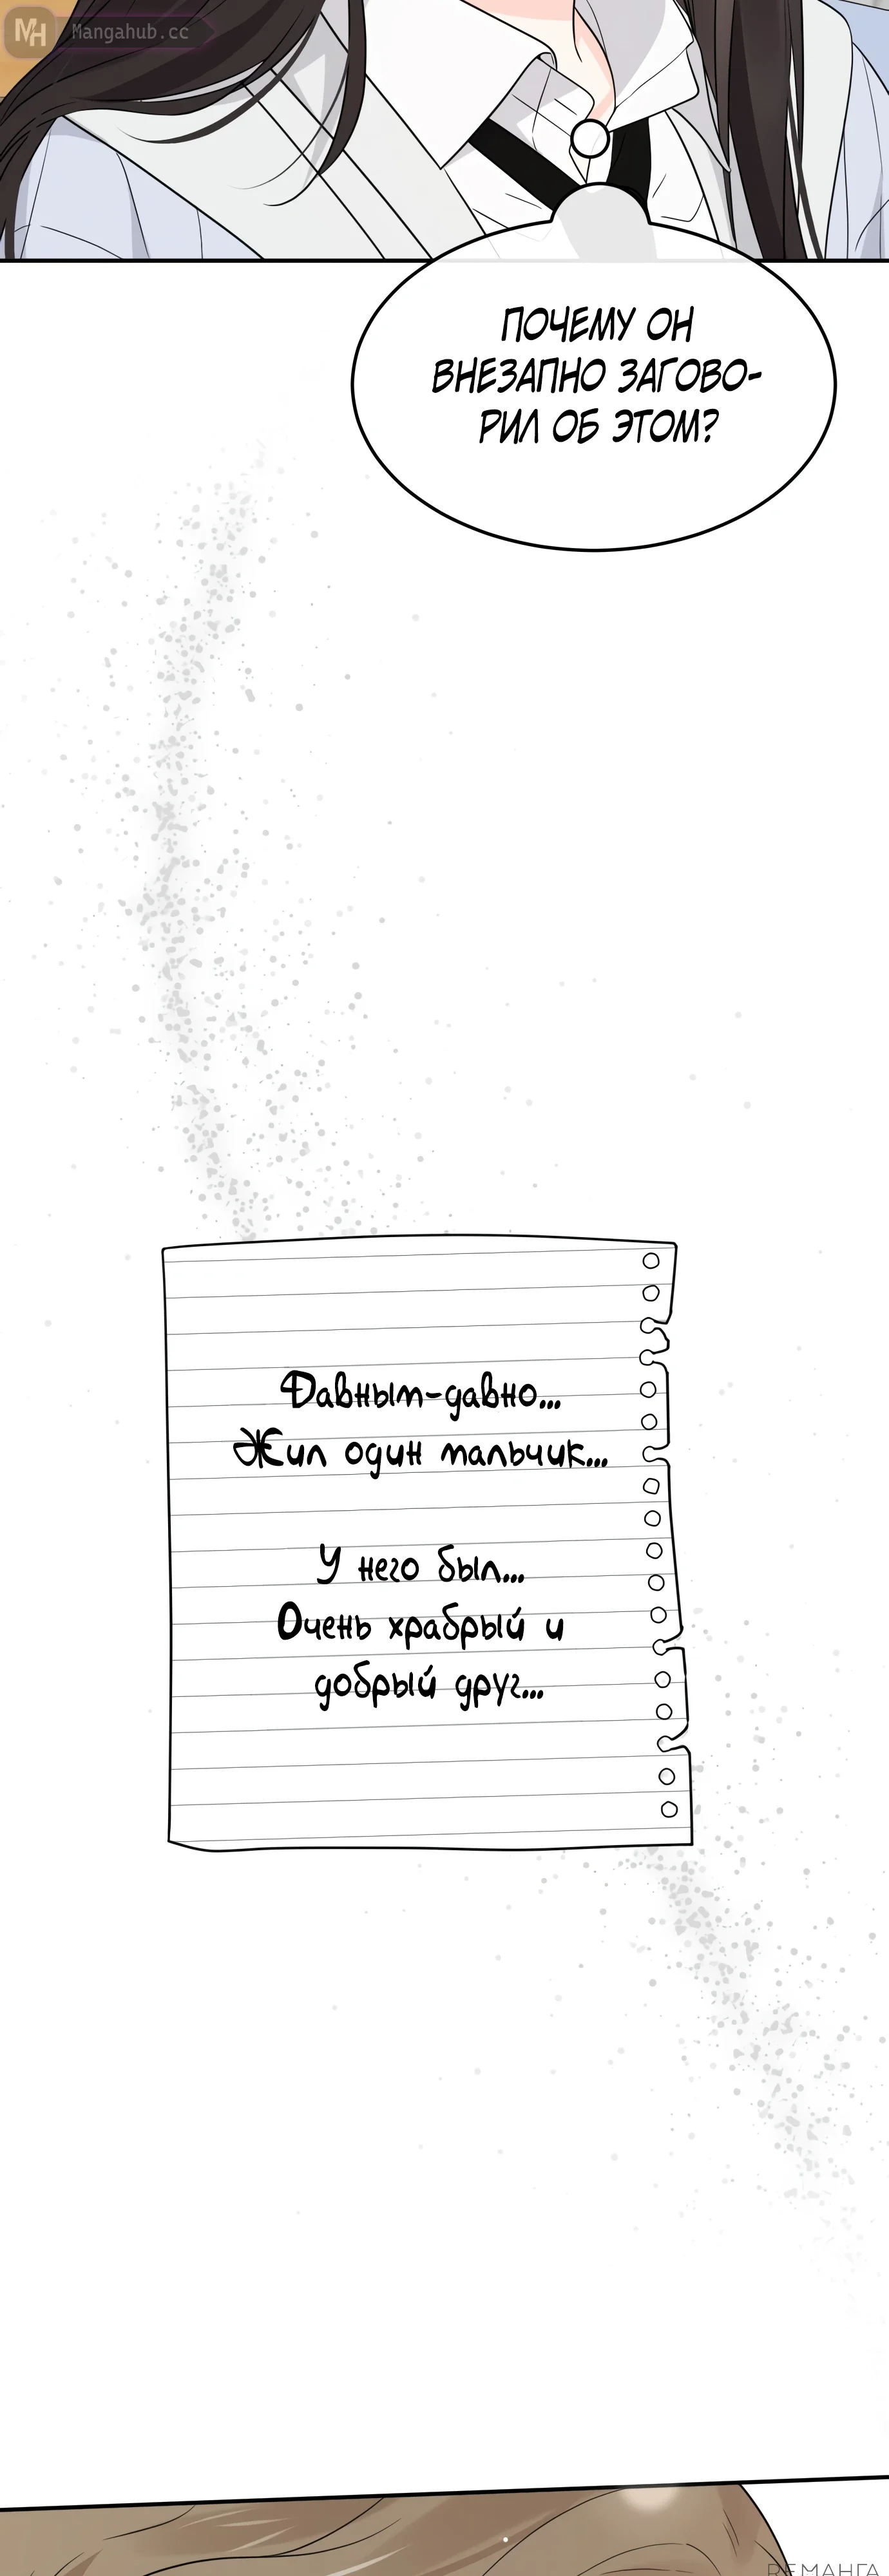 MH Mangahub.cc
ПОЧЕМУ ОН
ВНЕЗАПНО ЗАГОВО-
РИЛ ОБ ЭТОМ?
Давным-давно...
Жил один мальчик...
У него был...
Очень храбрый и
добрый друг...
REМАНГА